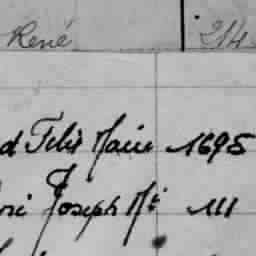 René 214
d Félix Marie 1695
ri Joseph Mie 111